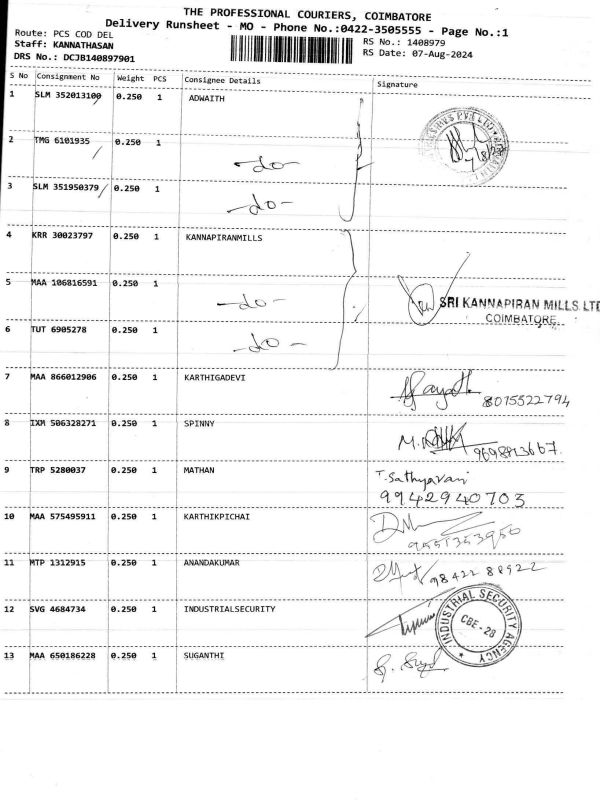 THE PROFESSIONAL COURIERS, COIMBATORE
Delivery Runsheet - MO - Phone No.:0422-3505555 - Page No.:1
Route: PCS COD DEL
RS No.: 1408979
Staff: KANNATHASAN
RS Date: 07-Aug-2024
DRS No.: DCJB140897901
S No Consignment No Weight PCS Consignee Details Signature
1 SLM 352013100 0.250 1 ADWAITH
2 TMG 6101935 0.250 1 -do-
3 SLM 351950379 0.250 1 -do-
4 KRR 30023797 0.250 1 KANNAPIRANMILLS
5 MAA 106816591 0.250 1 -do- SRI KANNAPIRAN MILLS LTD
COIMBATORE
6 TUT 6905278 0.250 1 -do-
7 MAA 866012906 0.250 1 KARTHIGADEVI
8015522794
8 IXM 506328271 0.250 1 SPINNY
9 TRP 5280037 0.250 1 MATHAN T. Sathyavani
9942940703
10 MAA 575495911 0.250 1 KARTHIKPICHAI
9551353950
11 MTP 1312915 0.250 1 ANANDAKUMAR
98422 88922
12 SVG 4684734 0.250 1 INDUSTRIALSECURITY
INDUSTRIAL SECURITY AGENCY
CBE-28
13 MAA 650186228 0.250 1 SUGANTHI